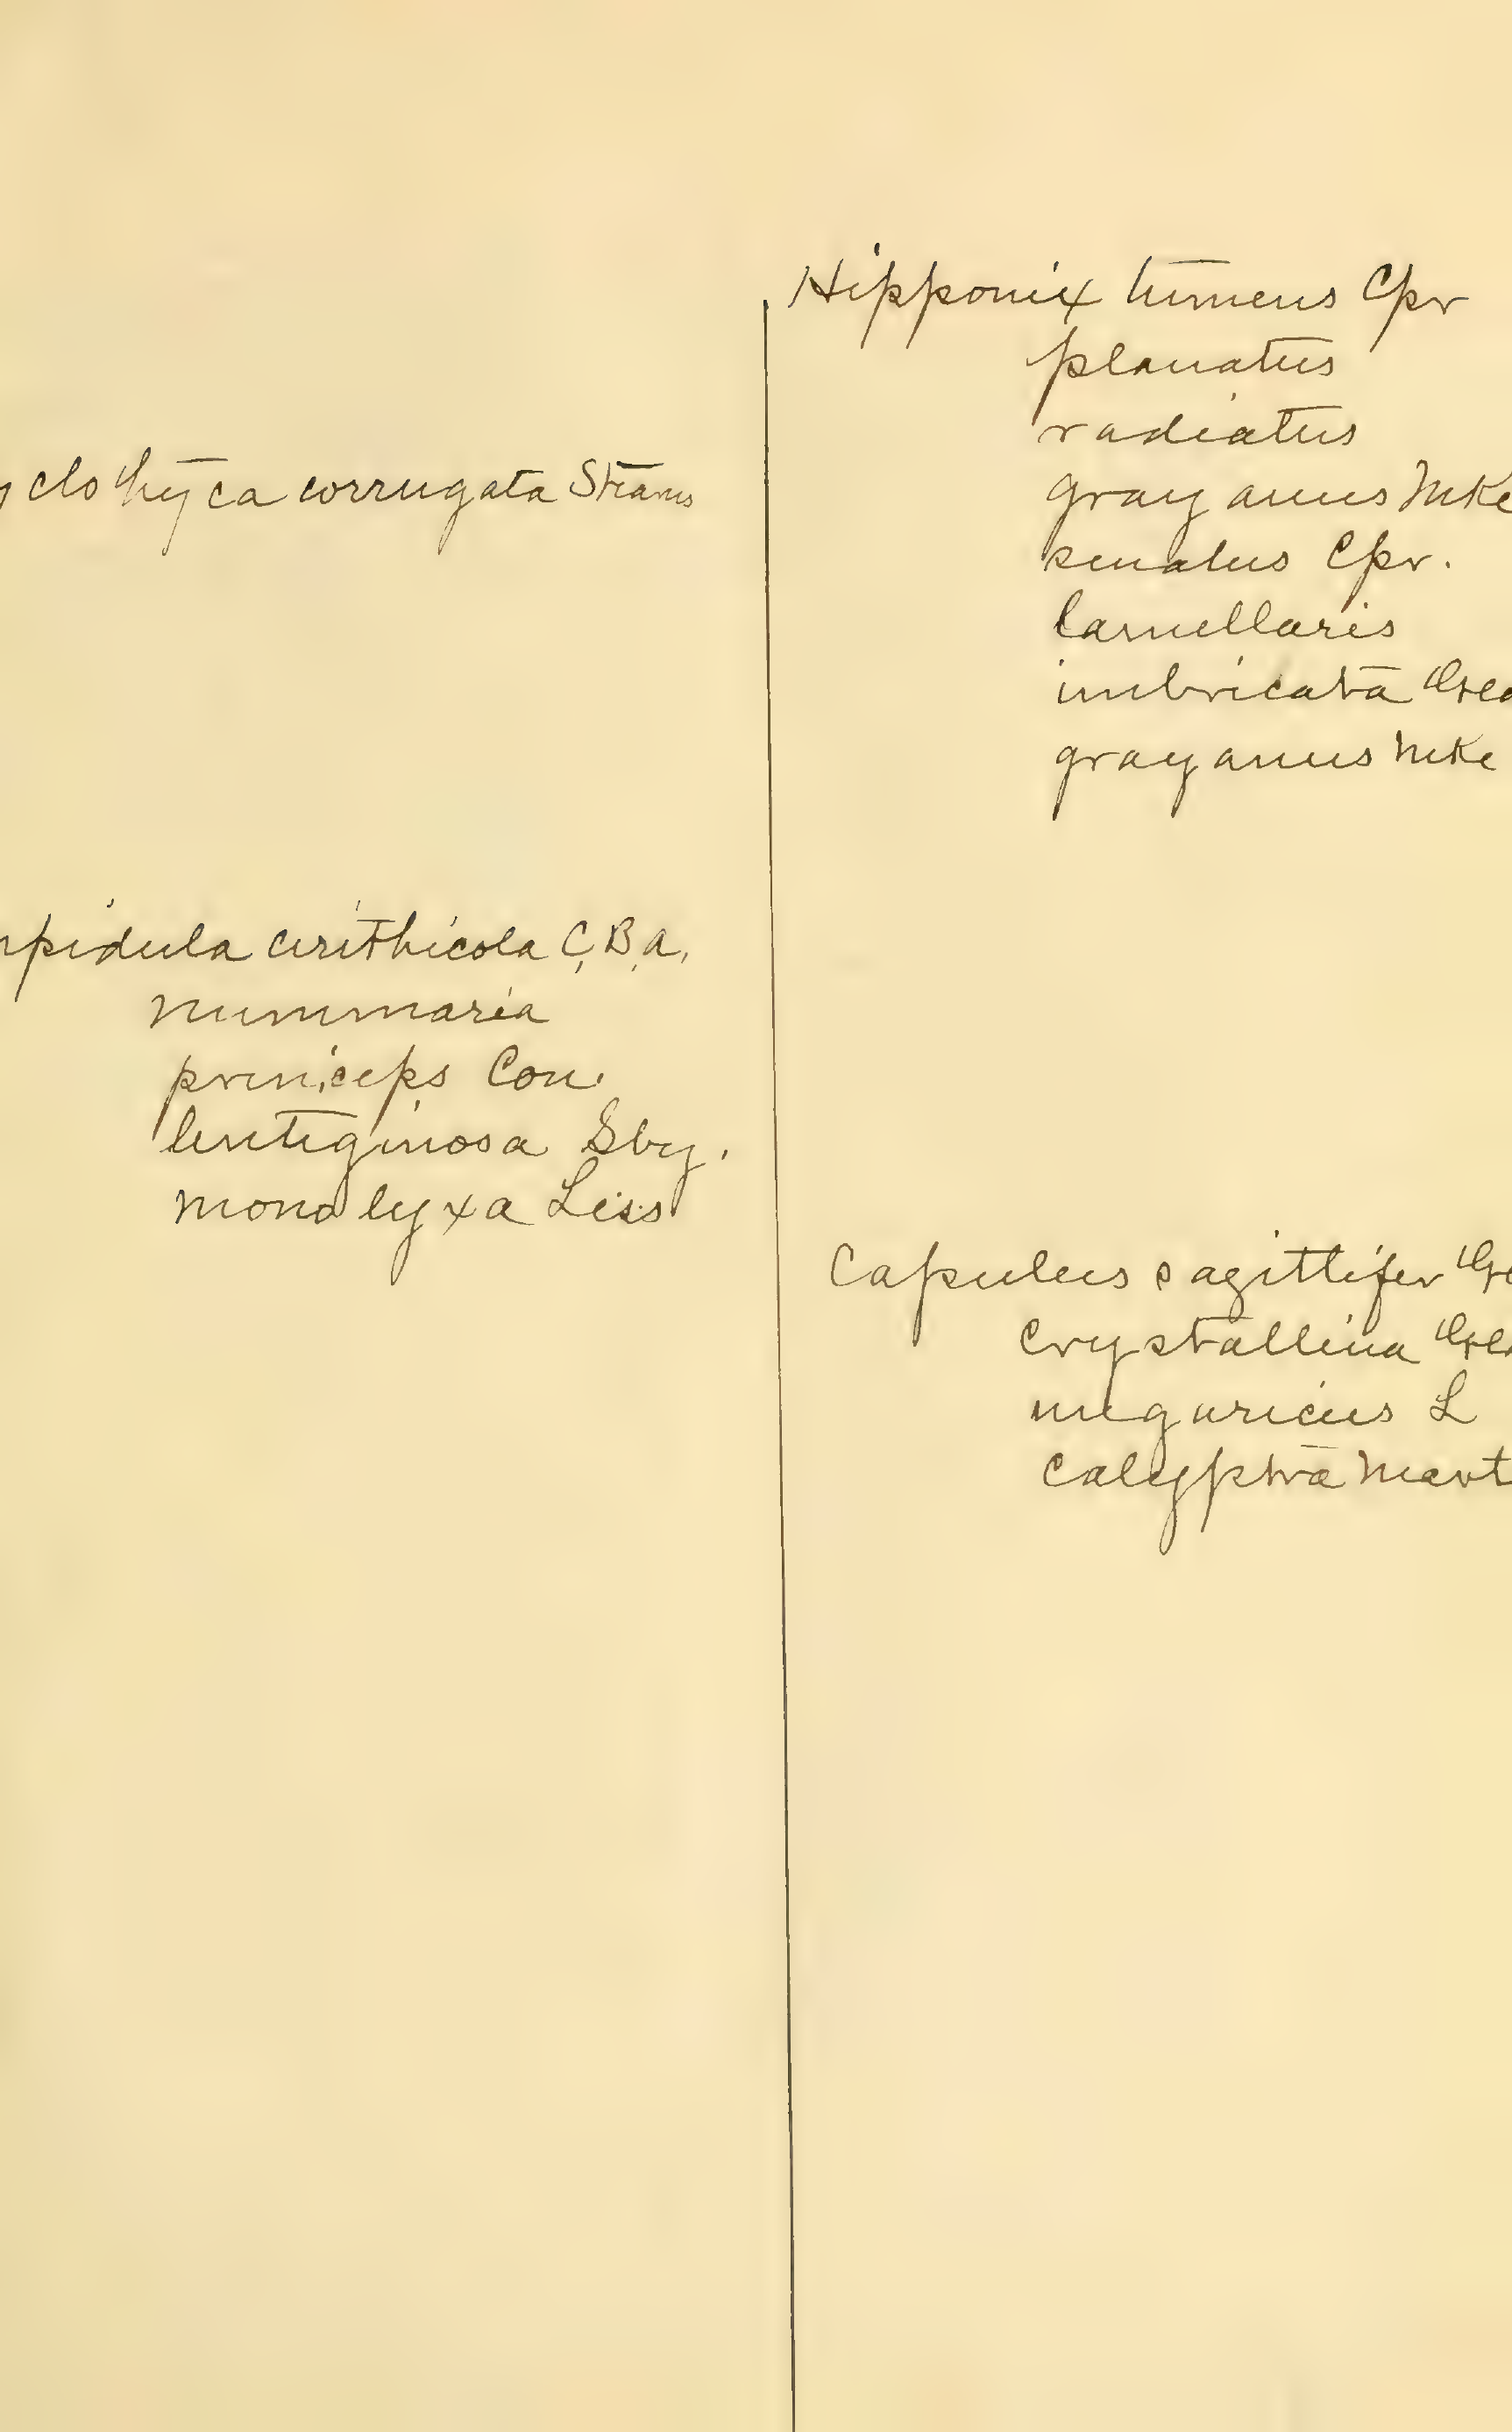 yclothyca corrugata Stearns
epidula cerithicola C.B.A.
nummaria
princeps Con.
lentiginosa Sby.
monolyxa Less
Hipponix tumens Cpr
planatus
radiatus
grayanus Mke
senatus Cpr.
lamellaris
imbricata
grayanus Mke
Capulus sagittifer
crystallina
ungaricus L
calyptra Mart